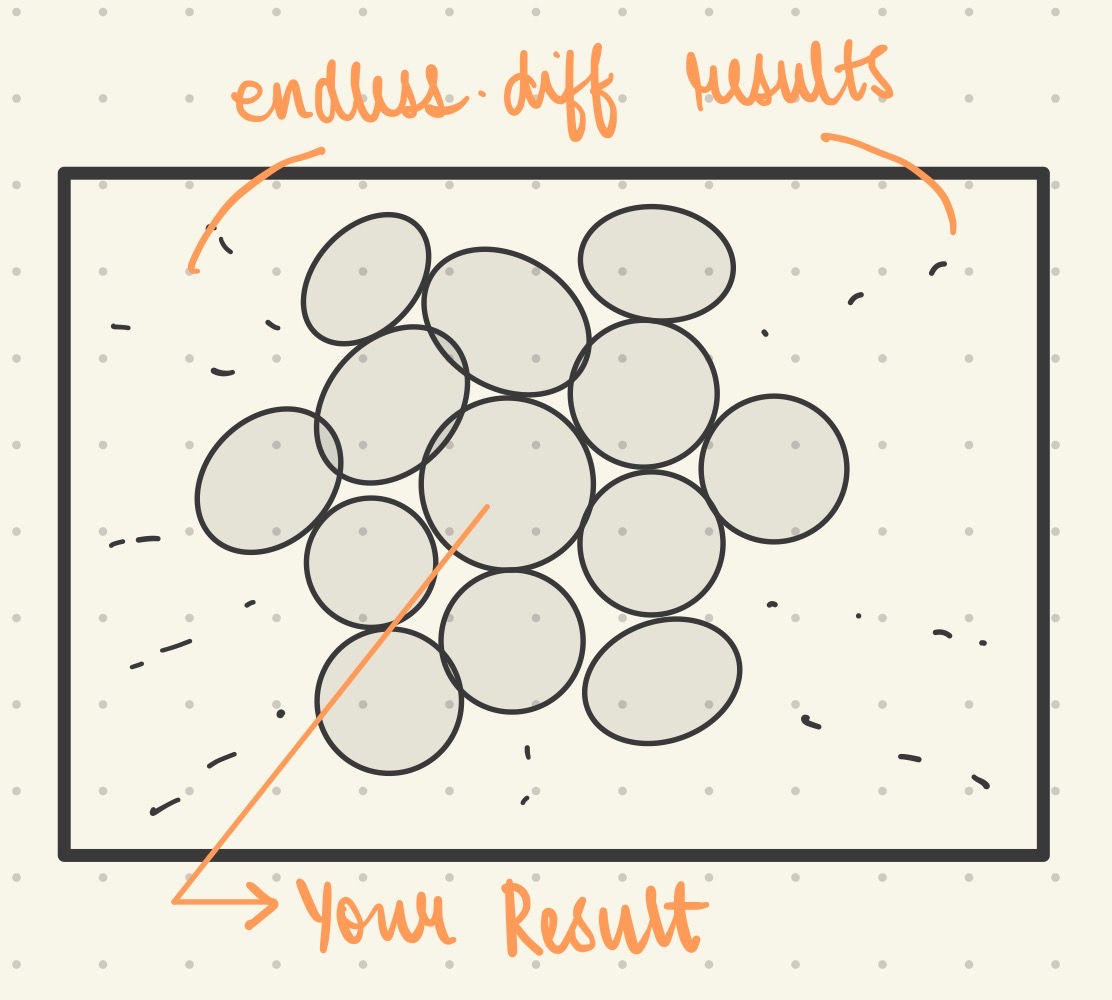 endless diff results
Your Result